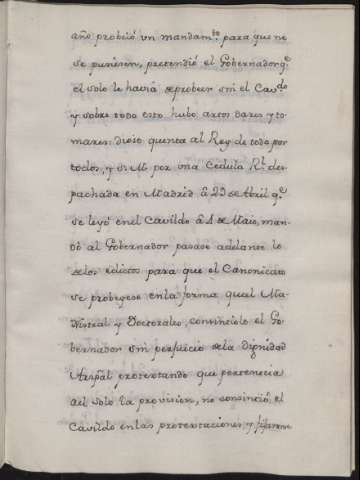 año probeió vn mandamto para que no
se pusiesen, pretendió el Gobernador q.e
el solo le havia de probeer sin el Cavdo
y sobre todo esto hubo artos dares y to-
mares: diose quenta al Rey de todo por
todos, y S. M. por una Cedula Rl. des-
pachada en Madrid â 29 de Abril q.e
se leyó en el Cavildo â 1 de Maio, man-
dó al Gobernador pasase adelante lo
de los edictos para que el Canonicato
se probeyese en la forma qual Ma-
gistral y Doctorales, convinolo el Go-
bernador sin perjuicio de la Dignidad
Arzpâl protextando que pertenecia
aél solo la provision, no consintió el
Cavildo en las protextaciones, y